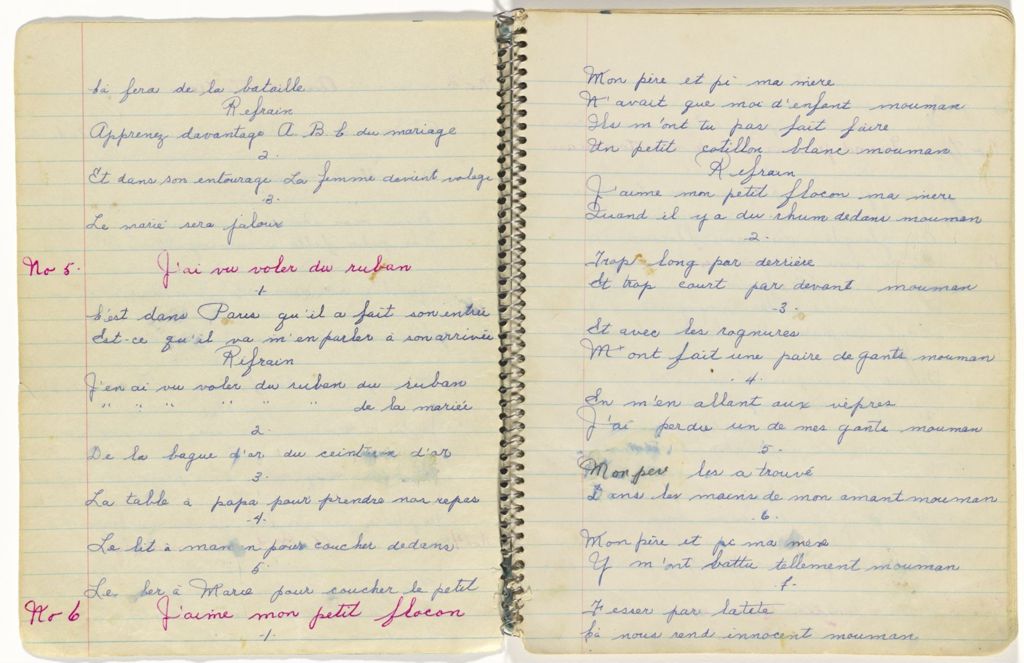 Ça fera de la bataille
Refrain
Apprenez davantage A B C du mariage
2.
Et dans son entourage La femme devient volage
.3.
Le marié sera jaloux
No 5. J'ai vu voler du ruban
1
C'est dans Paris qu'il a fait son entrée
Est-ce qu'il va m'en parler à son arrivée
Refrain
J'en ai vu voler du ruban du ruban
" " " " " " de la mariée
2.
De la bague d'or du ceinturon d'or
3.
La table à papa pour prendre nos repas
-4.
Le lit à maman pour coucher dedans
5
Le ber à Marie pour coucher le petit
No 6 J'aime mon petit flocon
-1-
Mon père et pi ma mère
N'avait que moi d'enfant mouman
Ils m'ont tu pas fait faire
Un petit cotillon blanc mouman
Refrain
J'aime mon petit flocon ma mère
Quand il y a du rhum dedans mouman
-2-
Trop long par derrière
Et trop court par devant mouman
-3-
Et avec les rognures
M'ont fait une paire de gants mouman
.4.
En m'en allant aux vèpres
J'ai perdu un de mes gants mouman
5.
Mon per les a trouvé
Dans les mains de mon amant mouman
.6.
Mon père et pi ma mère
Y m'ont battu tellement mouman
-7-
Fesser par latète
Ça nous rend innocent mouman